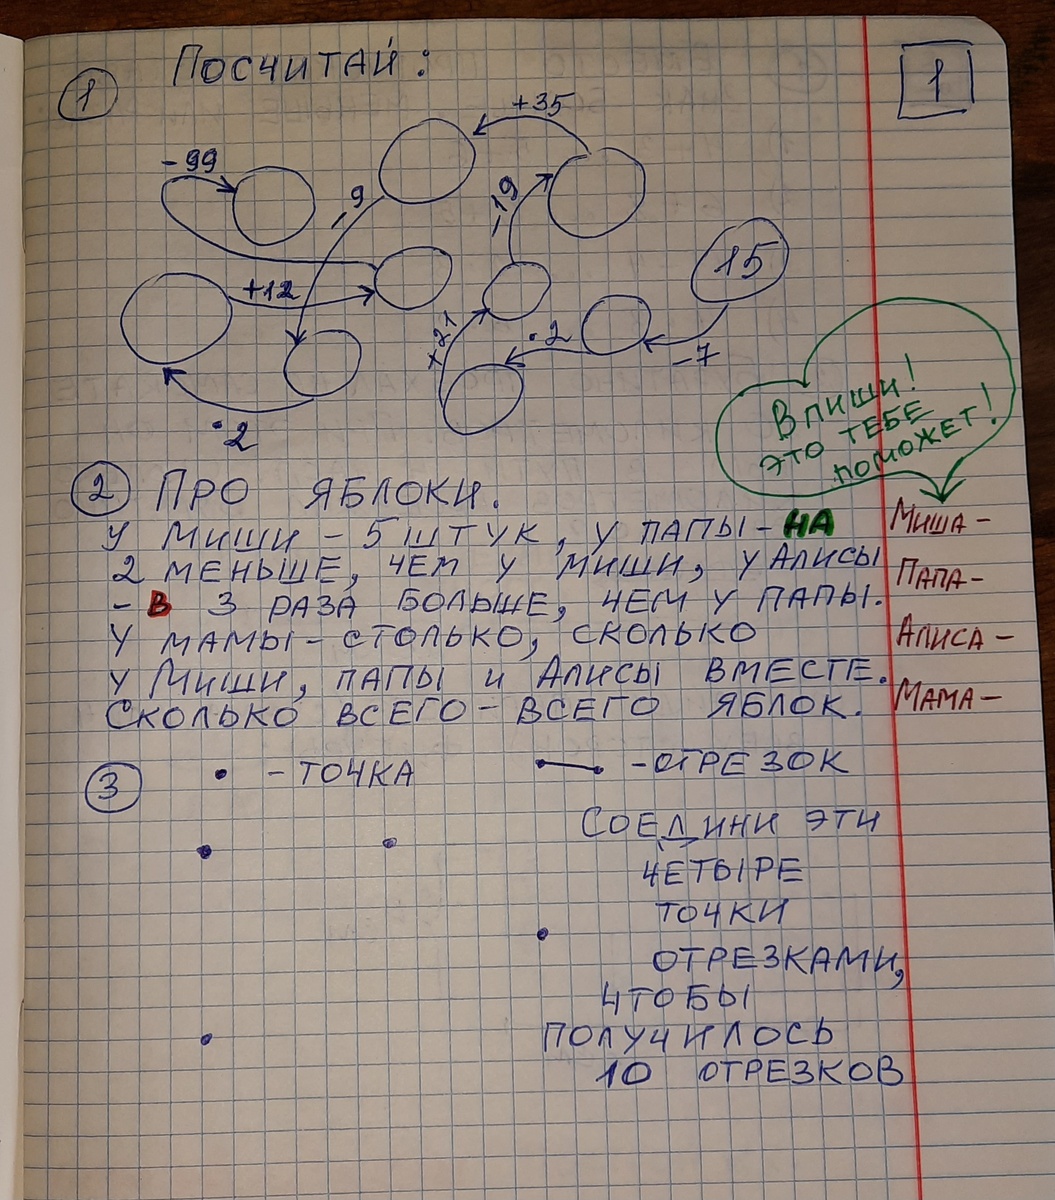 1
Посчитай:
1
+35
-99
-9
-19
15
+12
+21
·2
-7
·2
Впиши!
это тебе
поможет!
2 Про яблоки.
У Миши - 5 штук, у папы - на
2 меньше, чем у Миши, у Алисы
- в 3 раза больше, чем у папы.
У мамы - столько, сколько
у Миши, папы и Алисы вместе.
Сколько всего-всего яблок.
Миша -
Папа -
Алиса -
Мама -
3 - точка - отрезок
Соедини эти
четыре
точки
отрезками,
чтобы
получилось
10 отрезков